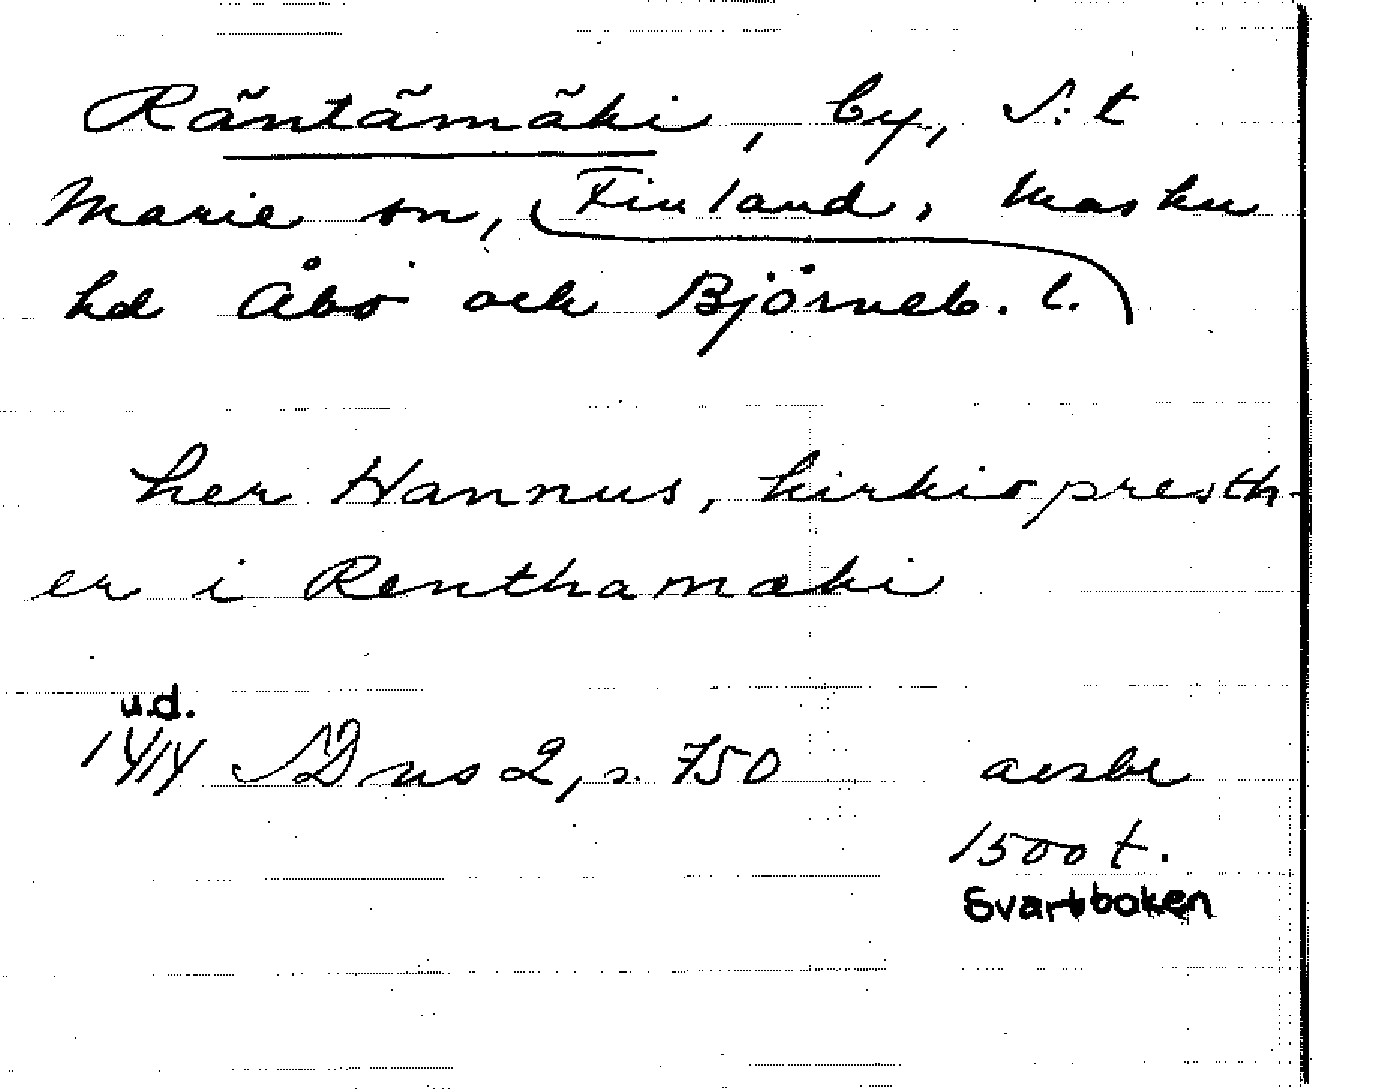 Räntämäki, by, S:t
Marie sn, (Finland, Masku
hd Åbo och Björneb. l.)
her Hannus, kirkio presth-
er i Renthamæki
u.d.
1414 SD ns 2, s. 750 avskr
1500 t.
Svartboken